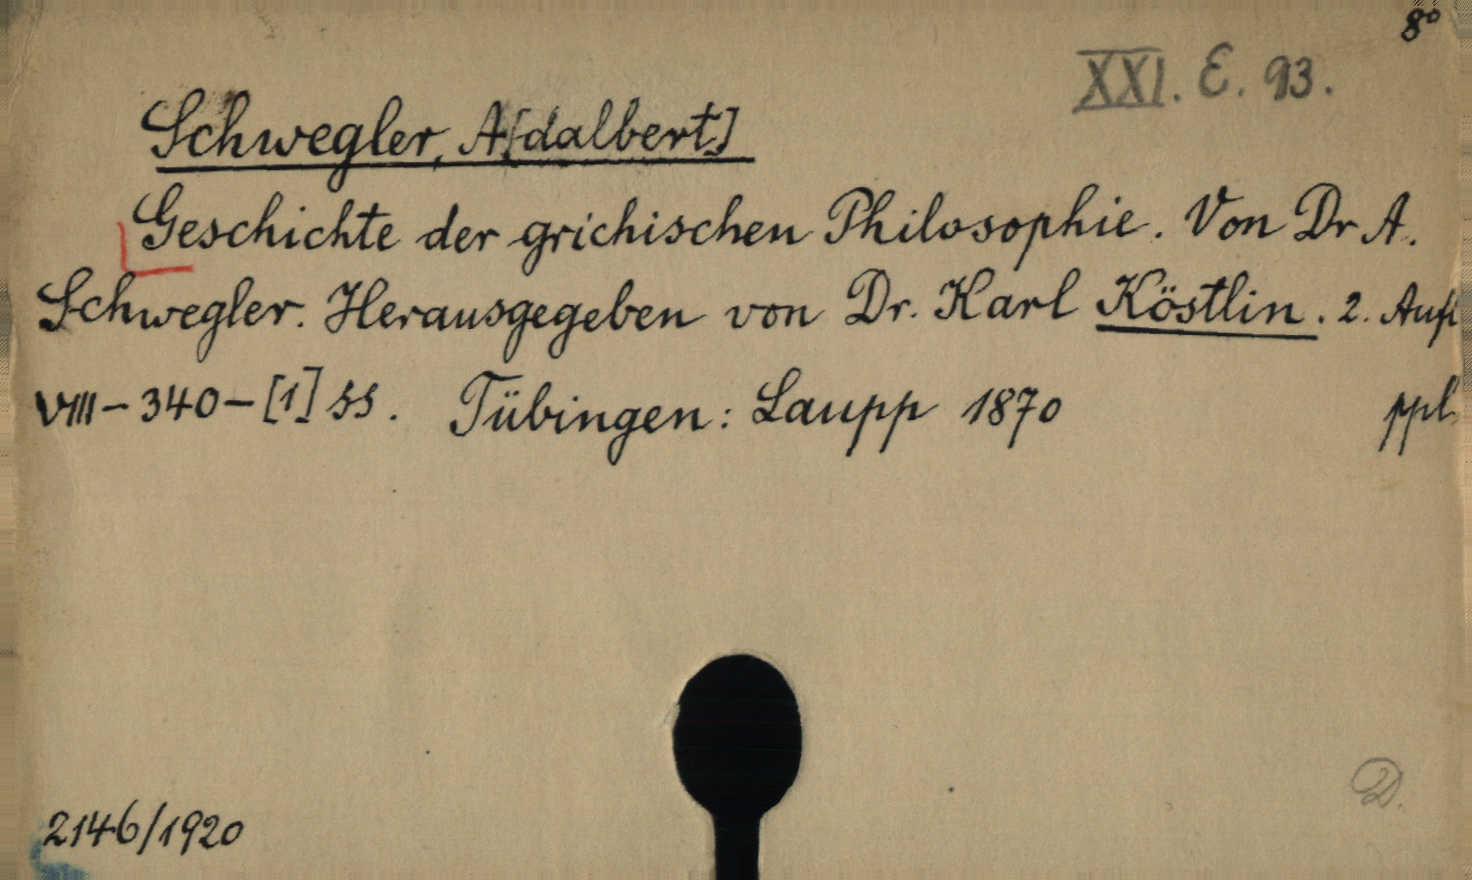 8°
XXI. E. 93.
Schwegler, A[dalbert]
Geschichte der grichischen Philosophie. Von Dr A.
Schwegler. Herausgegeben von Dr. Karl Köstlin. 2. Aufl
VIII – 340 – [1] ss. Tübingen: Laupp 1870 ppl.
D.
2146/1920